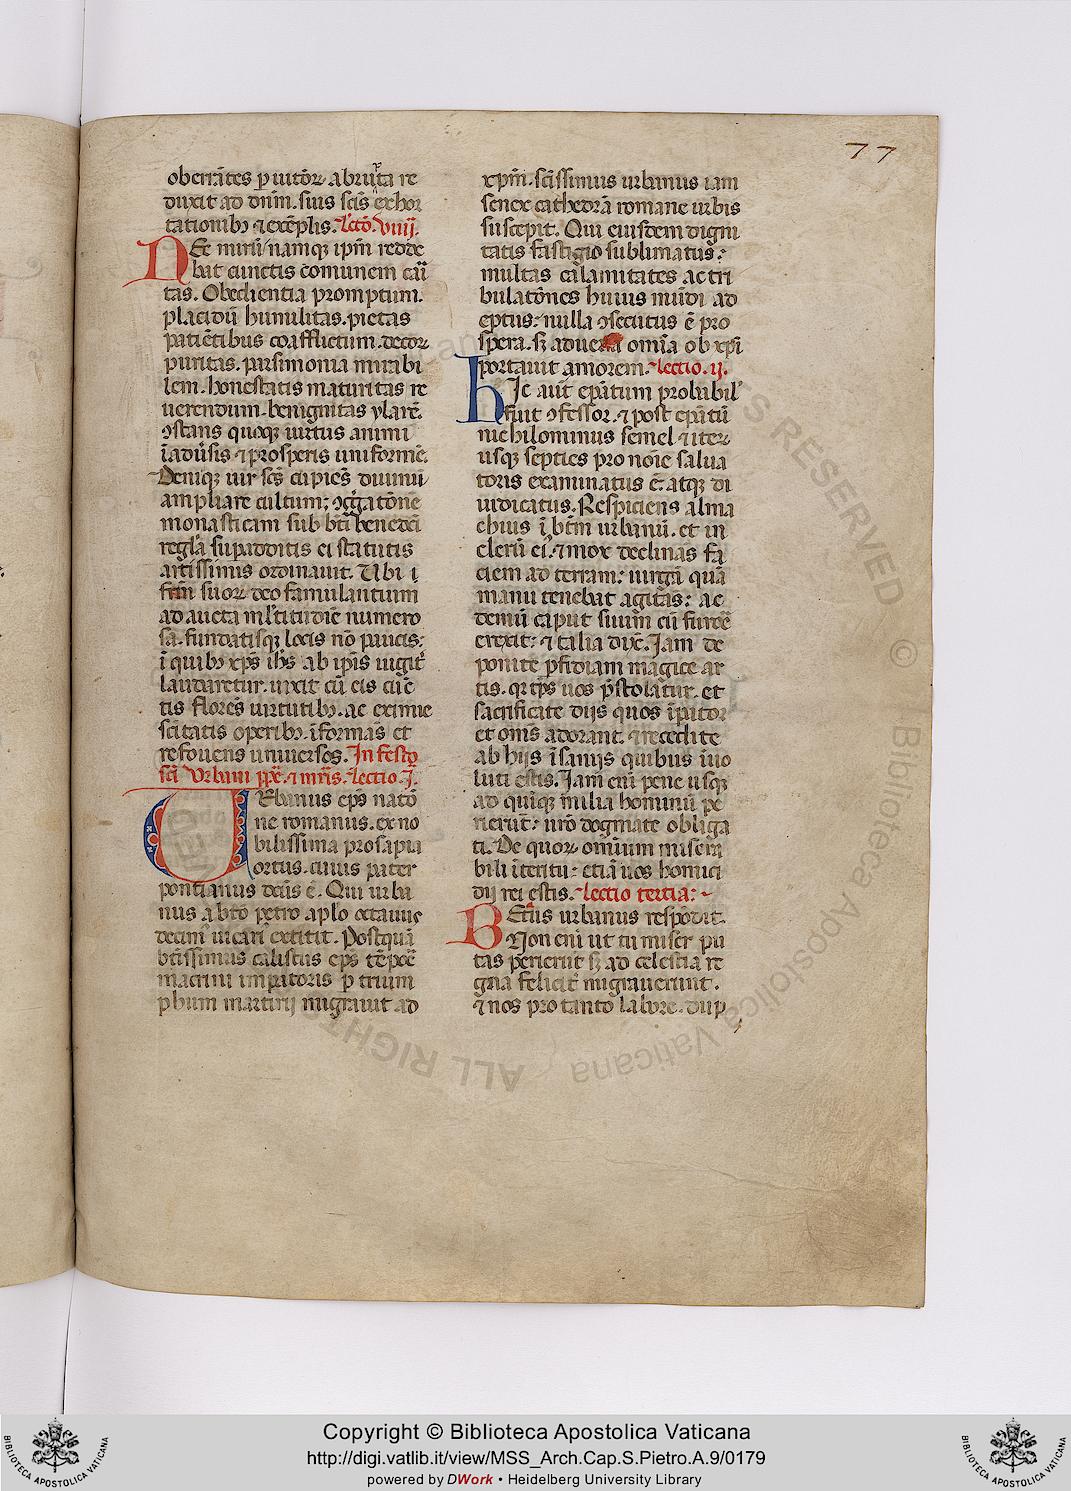 77
oberrātes p uitioꝝ abrupta re
duxit ad dn̄m. suis sc̄is exhor
tationibꝫ ⁊ exēplis. Lectō. viiij.
NEc mirū namqꝫ ip̄m redde
bat cunctis cōmunem cari
tas. Obedientia promptum.
placidū humilitas. pietas
patientibus coafflictum. decor
puritas. parsimonia mirabi
lem. honestatis maturitas re
uerendum. benignitas ylarē.
ꝯstans quoqꝫ uirtus animi
ī aduersis ⁊ prosperis uniformē.
Deniqꝫ uir sc̄s cupiēs diuinū
ampliare cultum; ꝯgregatōnē
monasticam sub bt̄i benedc̄i
regla supadditis ei statutis
artissimis ordinauit. Ubi ī
frm̄ suoꝝ deo famulantium
ad aucta multitudīe numero
sa. fundatisqꝫ locis nō paucis:
ī quibꝫ xp̄s ih̄s ab ip̄is iugit̄
laudaretur. uixit cū eis cūc
tis flores uirtutibꝫ. ac eximie
sc̄itatis operibꝫ. īformās et
refouens uniuersos. In festo
sc̄i Urbani pp̄e. ⁊ mr̄is. Lectio .j.
URbanus ep̄s natō
ne romanus. ex no
bilissima prosapia
ortus. cuius pater
pontianus dc̄us ē. Qui urba
nus a bt̄o petro aplo octauus
decim' uicari' extitit. Postquā
bt̄issimus calistus ep̄s tēpoꝫe
macrini impatoris p trium
phum martirij migrauit ad
xp̄m. sc̄issimus urbanus iam
senex cathedrā romane urbis
suscepit. Qui eiusdem digni
tatis fastigio sublimatus:
multas calamitates ac tri
bulatōnes huius mūdi ad
eptus: nulla ꝯsecutus ē pro
spera. sꝫ aduersa omīa ob xp̄i
portauit amorem. Lectio .ij.
hIc aut̄ ep̄atum probabil'
fuit ꝯfessor. ⁊ post ep̄atū
nichilominus semel ⁊ iteꝝ
usqꝫ septies pro noīe salua
toris examinatus ē atqꝫ di
iudicatus. Respiciens alma
chius ī bt̄m urbanū. et in
clerū eī. ⁊ mox declinās fa
ciem ad terram: uirgā quā
manu tenebat agitās: ac
demū caput suum cū furoꝫe
erexit: ⁊ talia dix̄. Jam de
ponite p̄fidiam magice ar
tis. qꝛ tp̄s uos p̄stolatur. et
sacrificate dijs quos īpatoꝝ
et om̄s adorant. ⁊ recedite
ab hijs īsanijs quibus īuo
luti estis. Jam enī pene usqꝫ
ad quīqꝫ milia hominū pe
rierūt: uro dogmate obliga
ti. De quoꝝ omnium misera
bili īteritu: etiā uos homici
dij rei estis. Lectio tertia:
BEat̄us urbanus respōdit.
Non enī ut tu miser pu
tas perierūt sꝫ ad celestia re
gna felicit̄ migrauerunt.
⁊ nos pro tanto labore. dup
Copyright © Biblioteca Apostolica Vaticana
http://digi.vatlib.it/view/MSS_Arch.Cap.S.Pietro.A.9/0179
powered by DWork • Heidelberg University Library
BIBLIOTECA APOSTOLICA VATICANA
BIBLIOTECA APOSTOLICA VATICANA